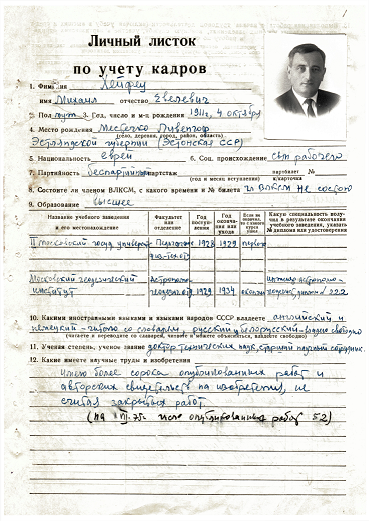 1
Личный листок
по учету кадров
1. Фамилия Хейфец
имя Михаил отчество Евелевич
2. Пол муж. 3. Год, число и м-ц рождения 1911 г, 4 октября
4. Место рождения Местечко Ливенгоф
(село, деревня, город, район, область)
Эстляндской губернии (Эстонская ССР)
5. Национальность еврей 6. Соц. происхождение сын рабочего
7. Партийность беспартийный партстаж партбилет №
(год и месяц вступления) к/карточка
8. Состоите ли членом ВЛКСМ, с какого времени и № билета чл ВЛКСМ не состою
9. Образование высшее
Название учебного заведения и его местонахождение
Факультет или отделение
Год поступления
Год окончания или ухода
Если не окончил, то с какого курса ушел
Какую специальность получил в результате окончания учебного заведения, указать № диплома или удостоверения
II московский госуд. универс. Педагогич. физ-тех. 1928 1929 первого
Московский геодезический институт Астрономо-геодезич. 1929 1934 окончил инженер астрономо-геодезист, диплом № 222
10. Какими иностранными языками и языками народов СССР владеете английский и
немецкий - читаю со словарем, русский и белорусский - владею свободно
(читаете и переводите со словарем, читаете и можете объясняться, владеете свободно)
11. Ученая степень, ученое звание доктор технических наук, старший научный сотрудник.
12. Какие имеете научные труды и изобретения
Имею более сорока опубликованных работ и
авторских свидетельств на изобретения, не
считая закрытых работ.
(на VII-75. число опубликованных работ 52)